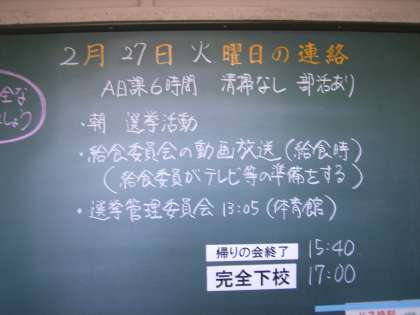 2月 27日 火曜日の連絡
A日課6時間 清掃なし 部活あり
全な
しょう
・朝 選挙活動
・給食委員会の動画放送(給食時)
(給食委員がテレビ等の準備をする)
・選挙管理委員会 13:05(体育館)
帰りの会終了 15:40
完全下校 17:00